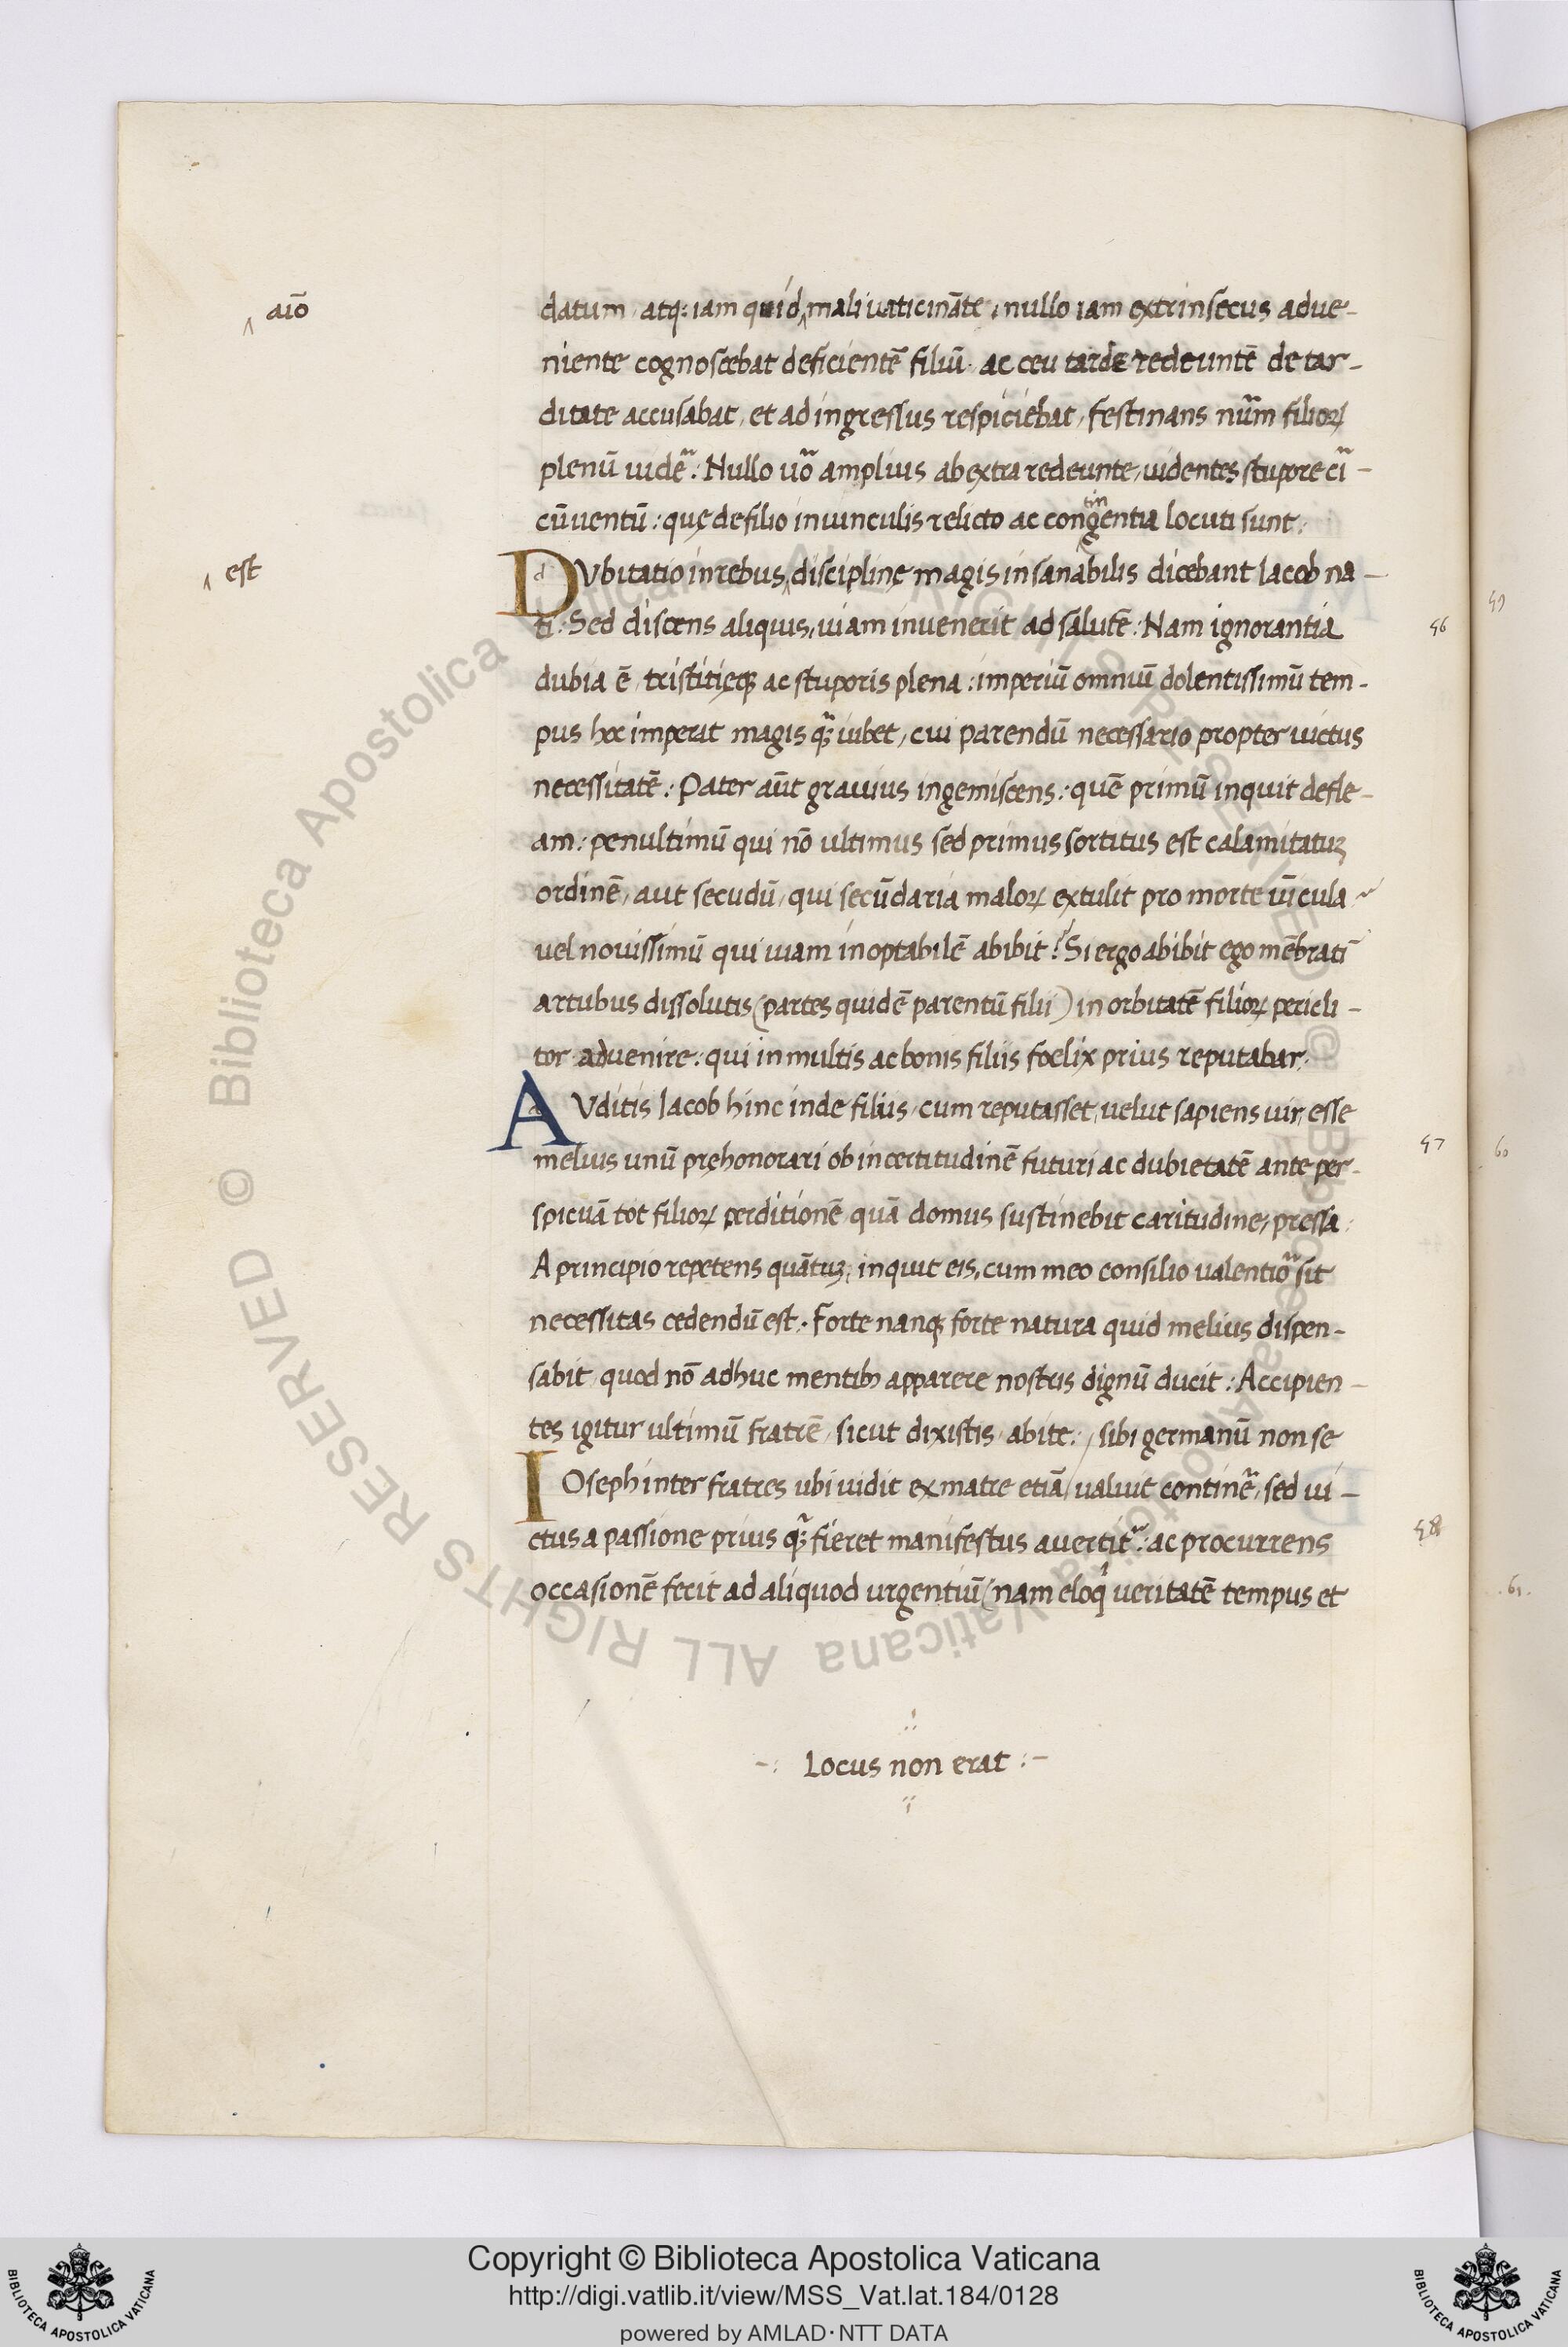 aiō
datum, atq: iam quid mali vaticināte, nullo iam extrinsecus adve-
niente cognoscebat deficientē filiū. ac ceu tarde redeuntē de tar-
ditate accusabat, et ad ingressus respiciebat, festinans nūm filioꝝ
plenū vidē: Nullo vō amplius ab extra redeunte, videntes stupore ci-
cūventū: quę de filio in vinculis relicto ac contingentia locuti sunt.
est
Dubitatio in rebus disciplinę magis insanabilis dicebant Iacob na-
ti: Sed discens aliquis, viam invenerit ad salutē: Nam ignorantia
56
59
dubia ē, tristitięq; ac stuporis plena: imperiū omniū dolentissimū tem-
pus hoc imperat magis qꝫ iubet, cui parendū necessario propter victus
necessitatē: Pater aūt gravius ingemiscens: quē primū inquit defle-
am: penultimū qui nō ultimus sed primus sortitus est calamitatuꝫ
ordinē, aut secudū, qui secūdaria maloꝝ extulit pro morte vīcula
vel novissimū qui viam inoptabilē abibit? Si ergo abibit ego mēbratī
artubus dissolutis (partes quidē parentū filii) in orbitatē filioꝝ pericli-
tor advenire: qui in multis ac bonis filiis foelix prius reputabar.
Auditis Iacob hinc inde filiis, cum reputasset, velut sapiens vir, esse
melius unū pręhonorari ob incertitudinē futuri ac dubietatē ante per-
57
60
spicuā tot filioꝝ perditionē, quā domus sustinebit caritudine, pressa:
A principio repetens quātuꝫ, inquit eis, cum meo consilio valentiō sit
necessitas cedendū est. Forte nanq; forte natura quid melius dispen-
sabit, quod nō adhuc mentibꝫ apparere nostris dignū ducit: Accipien-
tes igitur ultimū fratrē, sicut dixistis, abite: / sibi germanū non se
Ioseph inter fratres ubi vidit ex matre etiā / valuit continē, sed vi-
ctus a passione prius qꝫ fieret manifestus avertit: ac procurrens
58
occasionē fecit ad aliquod urgentiū (nam eloq veritatē tempus et
61.
-: Locus non erat :-
© Biblioteca Apostolica Vaticana ALL RIGHTS RESERVED
Copyright © Biblioteca Apostolica Vaticana
http://digi.vatlib.it/view/MSS_Vat.lat.184/0128
powered by AMLAD·NTT DATA
BIBLIOTECA APOSTOLICA VATICANA
BIBLIOTECA APOSTOLICA VATICANA